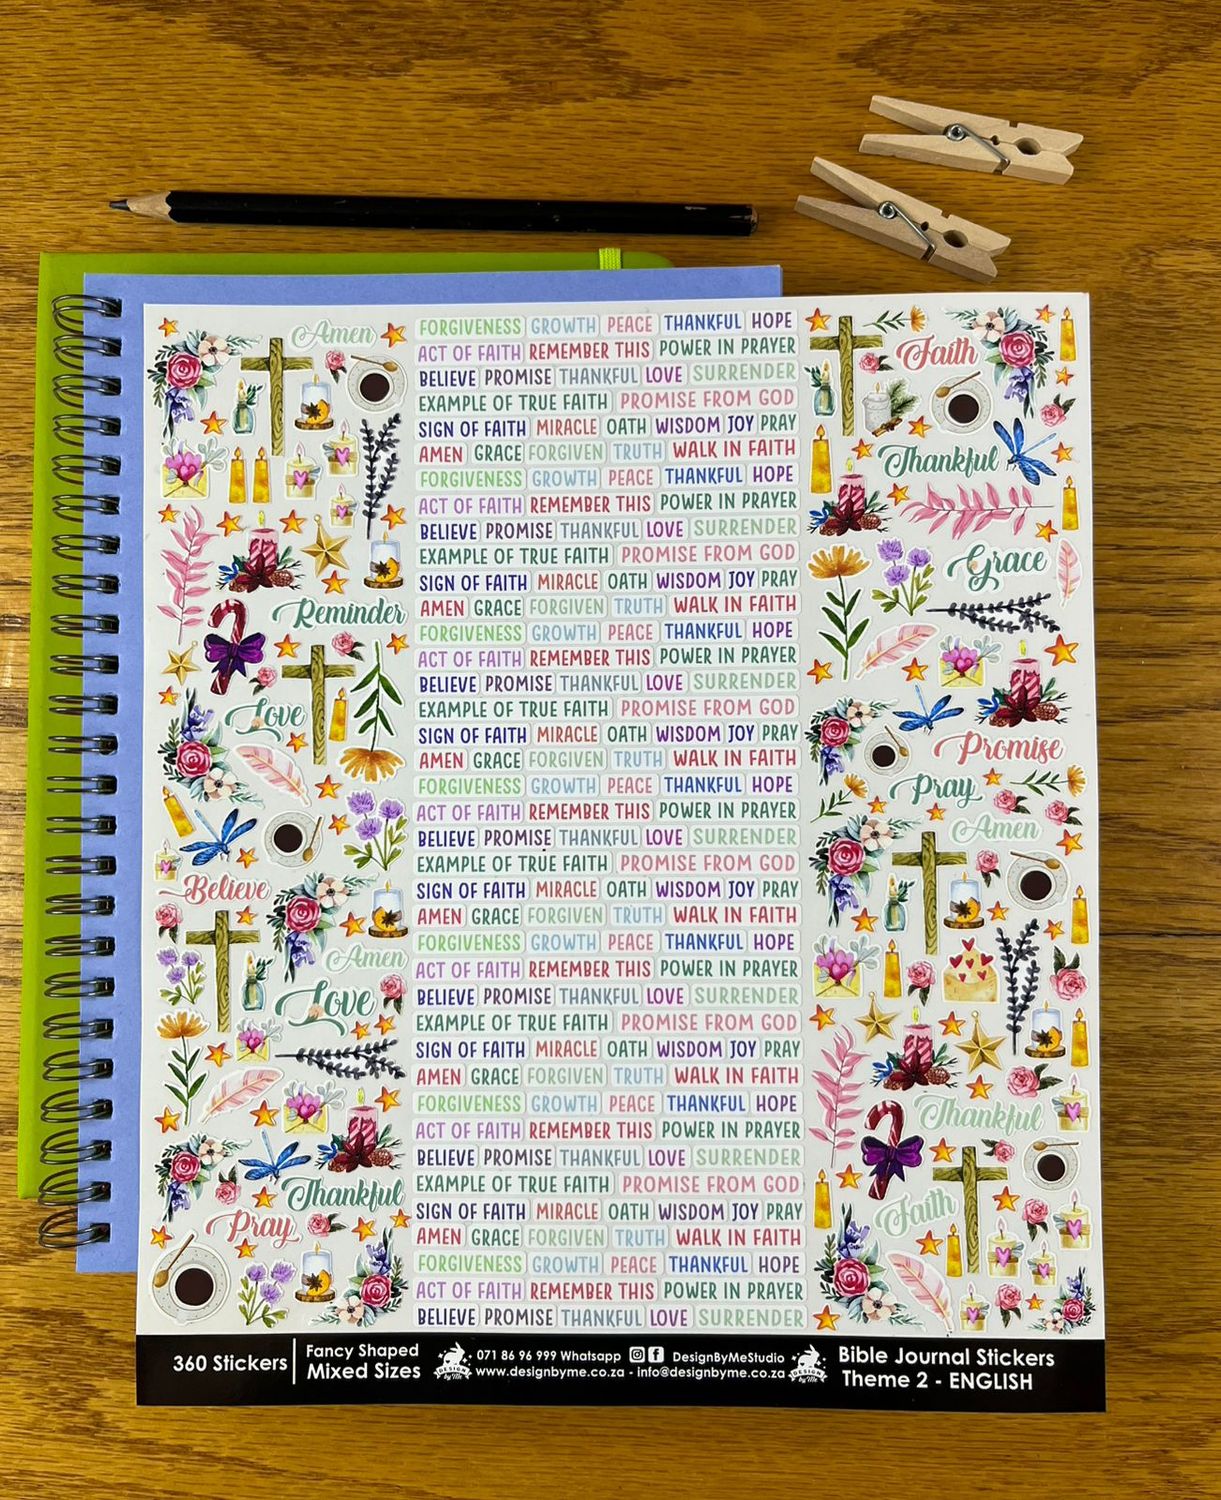 Amen
Reminder
Love
Believe
Amen
Love
Thankful
Pray
FORGIVENESS GROWTH PEACE THANKFUL HOPE
ACT OF FAITH REMEMBER THIS POWER IN PRAYER
BELIEVE PROMISE THANKFUL LOVE SURRENDER
EXAMPLE OF TRUE FAITH PROMISE FROM GOD
SIGN OF FAITH MIRACLE OATH WISDOM JOY PRAY
AMEN GRACE FORGIVEN TRUTH WALK IN FAITH
FORGIVENESS GROWTH PEACE THANKFUL HOPE
ACT OF FAITH REMEMBER THIS POWER IN PRAYER
BELIEVE PROMISE THANKFUL LOVE SURRENDER
EXAMPLE OF TRUE FAITH PROMISE FROM GOD
SIGN OF FAITH MIRACLE OATH WISDOM JOY PRAY
AMEN GRACE FORGIVEN TRUTH WALK IN FAITH
FORGIVENESS GROWTH PEACE THANKFUL HOPE
ACT OF FAITH REMEMBER THIS POWER IN PRAYER
BELIEVE PROMISE THANKFUL LOVE SURRENDER
EXAMPLE OF TRUE FAITH PROMISE FROM GOD
SIGN OF FAITH MIRACLE OATH WISDOM JOY PRAY
AMEN GRACE FORGIVEN TRUTH WALK IN FAITH
FORGIVENESS GROWTH PEACE THANKFUL HOPE
ACT OF FAITH REMEMBER THIS POWER IN PRAYER
BELIEVE PROMISE THANKFUL LOVE SURRENDER
EXAMPLE OF TRUE FAITH PROMISE FROM GOD
SIGN OF FAITH MIRACLE OATH WISDOM JOY PRAY
AMEN GRACE FORGIVEN TRUTH WALK IN FAITH
FORGIVENESS GROWTH PEACE THANKFUL HOPE
ACT OF FAITH REMEMBER THIS POWER IN PRAYER
BELIEVE PROMISE THANKFUL LOVE SURRENDER
EXAMPLE OF TRUE FAITH PROMISE FROM GOD
SIGN OF FAITH MIRACLE OATH WISDOM JOY PRAY
AMEN GRACE FORGIVEN TRUTH WALK IN FAITH
FORGIVENESS GROWTH PEACE THANKFUL HOPE
ACT OF FAITH REMEMBER THIS POWER IN PRAYER
BELIEVE PROMISE THANKFUL LOVE SURRENDER
EXAMPLE OF TRUE FAITH PROMISE FROM GOD
SIGN OF FAITH MIRACLE OATH WISDOM JOY PRAY
AMEN GRACE FORGIVEN TRUTH WALK IN FAITH
FORGIVENESS GROWTH PEACE THANKFUL HOPE
ACT OF FAITH REMEMBER THIS POWER IN PRAYER
BELIEVE PROMISE THANKFUL LOVE SURRENDER
Faith
Thankful
Grace
Promise
Pray
Amen
Thankful
Faith
360 Stickers
Fancy Shaped
Mixed Sizes
DESIGN
by Me
071 86 96 999 Whatsapp DesignByMeStudio
www.designbyme.co.za - info@designbyme.co.za
DESIGN
by Me
Bible Journal Stickers
Theme 2 - ENGLISH